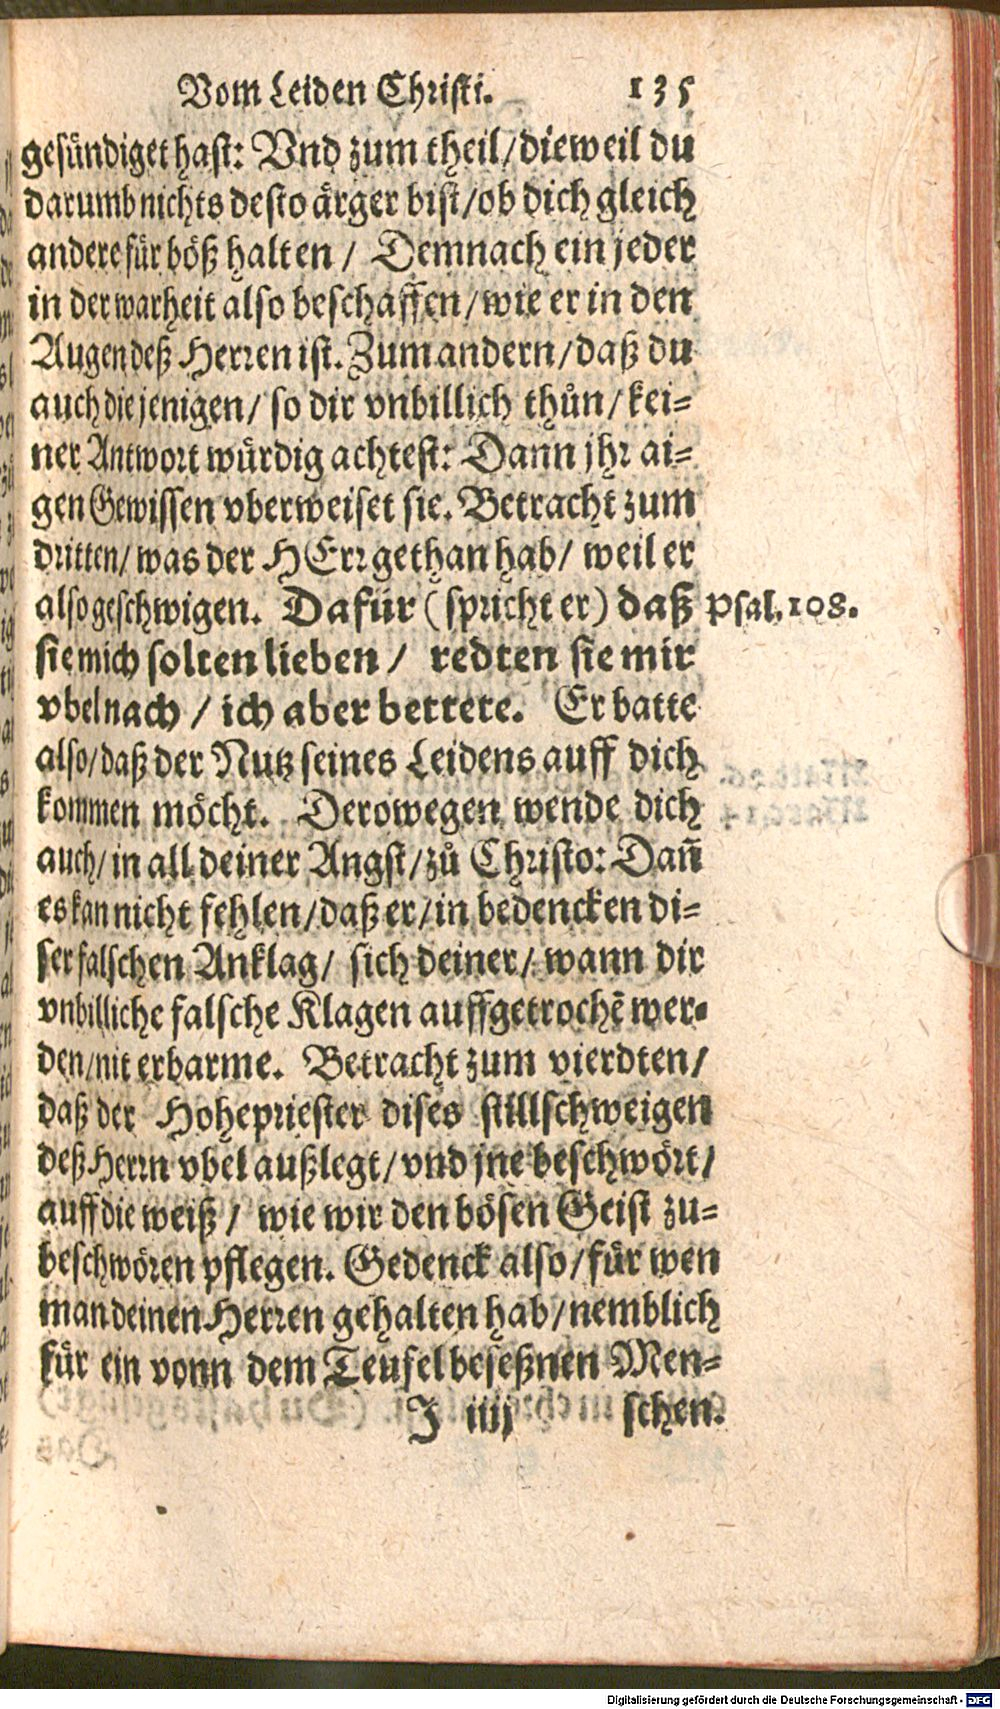 Vom Leiden Christi. 135
gesündiget hast: Vnd zum theil/dieweil du
darumb nichts desto ärger bist/ob dich gleich
andere für böß halten / Demnach ein jeder
in der warheit also beschaffen/wie er in den
Augen deß Herren ist. Zum andern/daß du
auch die jenigen/ so dir vnbillich thůn/kei-
ner Antwort würdig achtest: Dann jhr ai-
gen Gewissen vberweiset sie. Betracht zum
dritten/ was der HErr gethan hab/ weil er
also geschwigen. Dafür (spricht er) daß Psal. 108.
sie mich solten lieben / redten sie mir
vbel nach / ich aber bettete. Er batte
also/daß der Nutz seines Leidens auff dich
kommen möcht. Derowegen wende dich
auch/in all deiner Angst/zů Christo: Dañ
es kan nicht fehlen/daß er/in bedencken di-
ser falschen Anklag/ sich deiner/ wann dir
vnbilliche falsche Klagen auffgetrochẽ wer-
den/nit erbarme. Betracht zum vierdten/
daß der Hohepriester dises stillschweigen
deß Herrn vbel außlegt/vnd jne beschwört/
auff die weiß/ wie wir den bösen Geist zu-
beschwören pflegen. Gedenck also/für wen
man deinen Herren gehalten hab/nemblich
für ein vonn dem Teufel beseßnen Men-
J iiij schen.
Digitalisierung gefördert durch die Deutsche Forschungsgemeinschaft - DFG